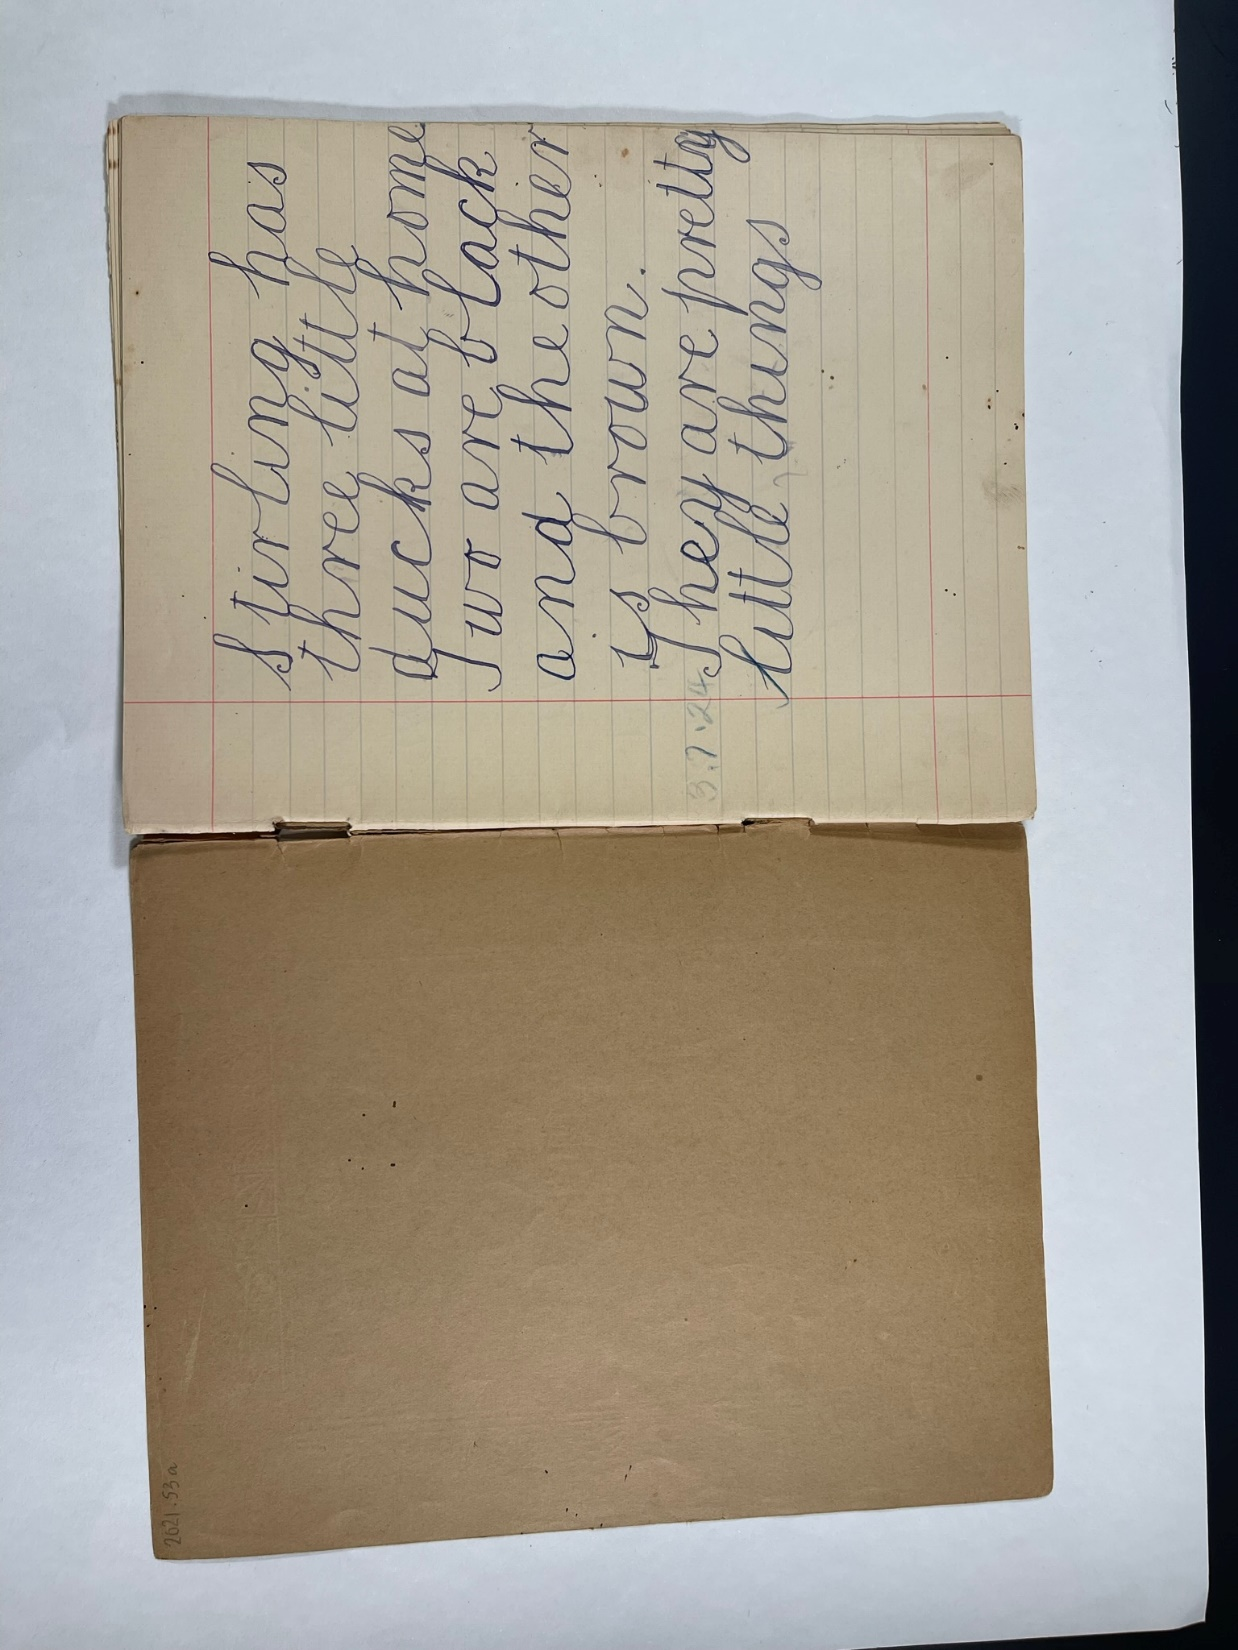 2021.53a
Stirling has
three little
ducks at home
Two are black
and the other
is brown.
3.7.24
They are pretty
little things